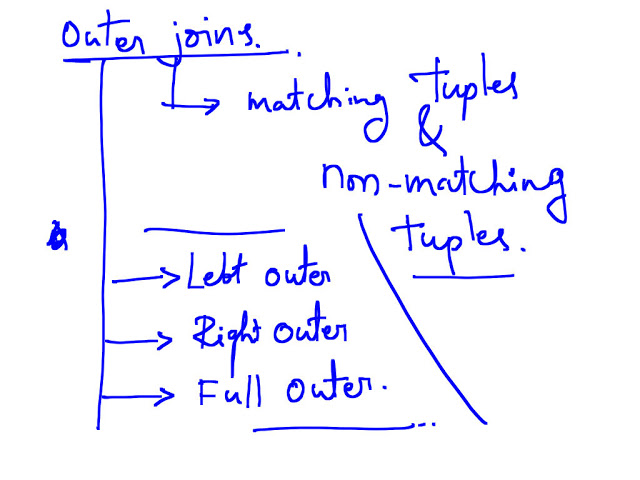 Outer joins.
matching tuples
&
non-matching
tuples.
Left outer
Right outer
Full outer.